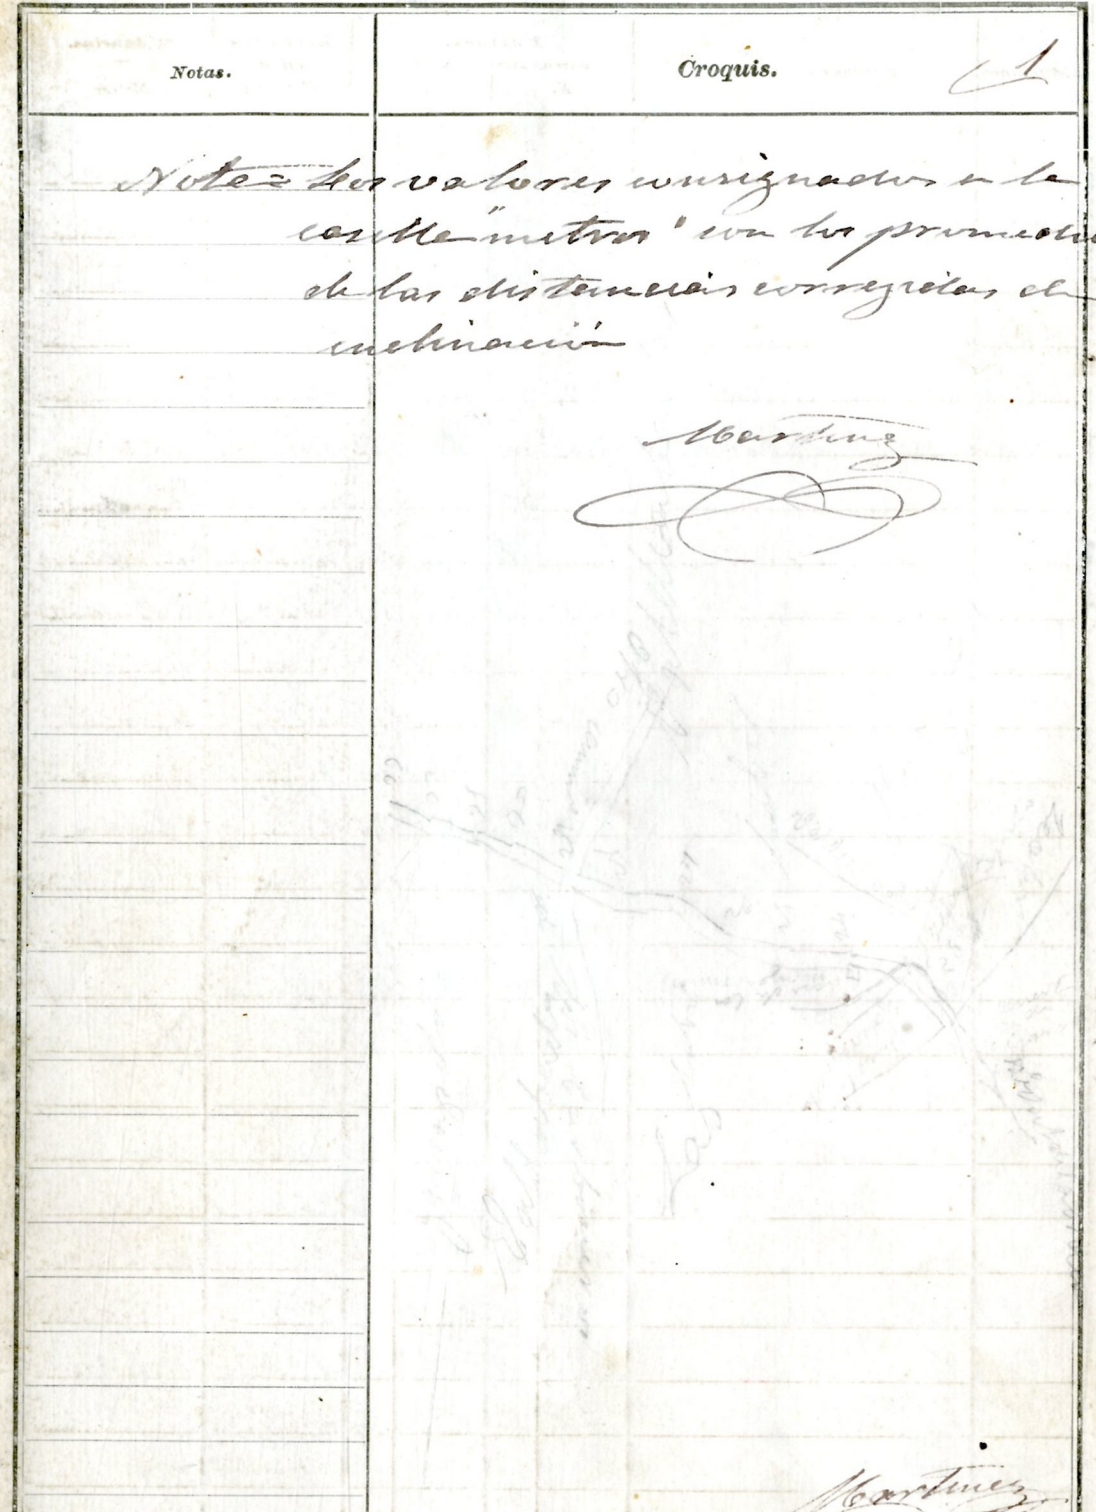 Notas.
Croquis.
1
Nota= Los valores consignados en la
casilla "metros" son los promedios
de las distancias corregidas de
inclinación
Martinez
Martinez